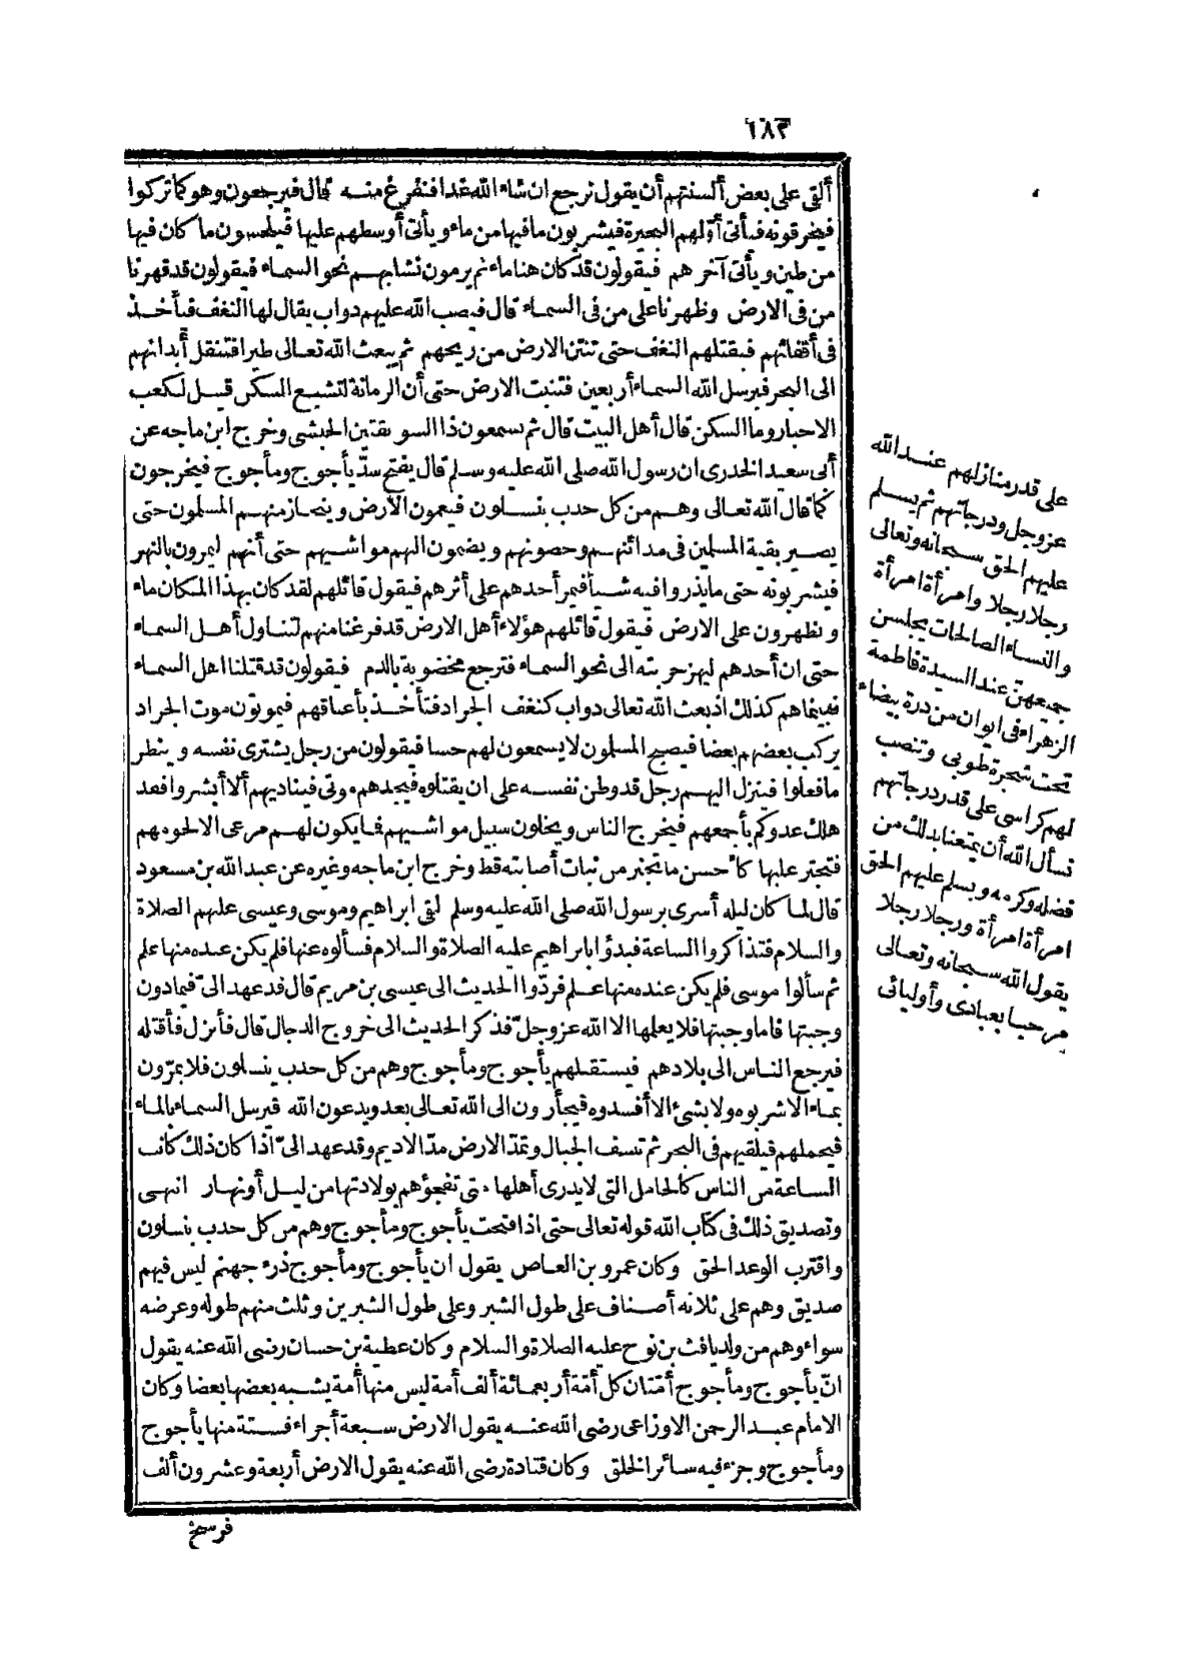 ١٨٣
ألقى على بعض ألسنتهم أن يقول نرجع ان شاء الله غدا فنفرغ منه قال فيرجعون وهو كما تركوا
فيخرقونه فيأتى أوّلهم البحيرة فيشربون ما فيها من ماء ويأتى أوسطهم عليها فيلحسون ما كان فيها
من طين ويأتى آخرهم فيقولون قد كان هنا ماء ثم يرمون نشابهم نحو السماء فيقولون قد قهرنا
من فى الارض وظهرنا على من فى السماء قال فيصب الله عليهم دواب يقال لها النغف فتأخذ
فى أقفائهم فيقتلهم النغف حتى تنتن الارض من ريحهم ثم يبعث الله تعالى طيرا فتنقل أبدانهم
الى البحر فيرسل الله السماء أربعين فتنبت الارض حتى أن الرمانة لتشبع السكن قيل لكعب
الاحبار وما السكن قال أهل البيت قال ثم يسمعون ذا السويقتين الحبشى وخرج ابن ماجه عن
أبى سعيد الخدرى ان رسول الله صلى الله عليه وسلم قال يفتح سدّ يأجوج ومأجوج فيخرجون
كما قال الله تعالى وهم من كل حدب ينسلون فيعمون الارض وينحاز منهم المسلمون حتى
يصير بقية المسلمين فى مدائنهم وحصونهم ويضمون اليهم مواشيهم حتى أنهم ليمرون بالنهر
فيشربونه حتى ما يذروا فيه شيأ فيمر أحدهم على أثرهم فيقول قائلهم لقد كان بهذا المكان ماء
ويظهرون على الارض فيقول قائلهم هؤلاء أهل الارض قد فرغنا منهم لنناول أهل السماء
حتى ان أحدهم ليهز حربته الى نحو السماء فترجع مخضوبة بالدم فيقولون قد قتلنا اهل السماء
فبينماهم كذلك اذ بعث الله تعالى دواب كنغف الجراد فتأخذ بأعناقهم فيموتون موت الجراد
يركب بعضهم بعضا فيصبح المسلمون لا يسمعون لهم حسا فيقولون من رجل يشترى نفسه وينظر
ما فعلوا فينزل اليهم رجل قد وطن نفسه على ان يقتلوه فيجدهم موتى فيناديهم ألا أبشروا فقد
هلك عدوكم بأجمعهم فيخرج الناس ويخلون سبيل مواشيهم فما يكون لهم مرعى الا لحومهم
فتجتر عليها كأحسن ما تجتر من نبات أصابته قط وخرج ابن ماجه وغيره عن عبد الله بن مسعود
قال لما كان ليله أسرى برسول الله صلى الله عليه وسلم لقى ابراهيم وموسى وعيسى عليهم الصلاة
والسلام فتذاكروا الساعة فبدؤا بابراهيم عليه الصلاة والسلام فسألوه عنها فلم يكن عنده منها علم
ثم سألوا موسى فلم يكن عنده منها علم فردّوا الحديث الى عيسى بن مريم قال قد عهد الىّ فيما دون
وجبتها فاما وجبتها فلا يعلمها الا الله عز وجلّ فذكر الحديث الى خروج الدجال قال فأنزل فأقتله
فيرجع الناس الى بلادهم فيستقبلهم يأجوج ومأجوج وهم من كل حدب ينسلون فلا يمرّون
بماء الا شربوه ولا بشئ الا أفسدوه فيجأرون الى الله تعالى بعد ويدعون الله فيرسل السماء بالماء
فيحملهم فيلقيهم فى البحر ثم تنسف الجبال وتمدّ الارض مدّ الاديم وقد عهد الىّ اذا كان ذلك كانت
الساعة من الناس كالحامل التى لا يدرى أهلها متى تفجؤهم بولادتها من ليل أو نهار انتهى
وتصديق ذلك فى كتاب الله قوله تعالى حتى اذا فتحت يأجوج ومأجوج وهم من كل حدب ينسلون
واقترب الوعد الحق وكان عمرو بن العاص يقول ان يأجوج ومأجوج ذرء جهنم ليس فيهم
صديق وهم على ثلاثة أصناف على طول الشبر وعلى طول الشبرين وثلث منهم طوله وعرضه
سواء وهم من ولد يافث بن نوح عليه الصلاة والسلام وكان عطية بن حسان رضى الله عنه يقول
انّ يأجوج ومأجوج أمّتان كل أمّة أربعمائة ألف أمة ليس منها أمة يشبه بعضها بعضا وكان
الامام عبد الرحمن الاوزاعى رضى الله عنه يقول الارض سبعة أجزاء فستة منها يأجوج
ومأجوج وجزء فيه سائر الخلق وكان قتادة رضى الله عنه يقول الارض أربعة وعشرون ألف
فرسخ
على قدر منازلهم عند الله
عز وجل ودرجاتهم ثم يسلم
عليهم الحق سبحانه وتعالى
رجلا رجلا وامرأة امرأة
والنساء الصالحات يجلسن
جميعهن عند السيدة فاطمة
الزهراء فى ايوان من درة بيضاء
تحت شجرة طوبى وتنصب
لهم كراسى على قدر درجاتهم
نسأل الله أن يمتعنا بذلك من
فضله وكرمه ويسلم عليهم الحق
امرأة امرأة ورجلا رجلا
يقول الله سبحانه وتعالى
مرحبا بعبادى وأوليائى